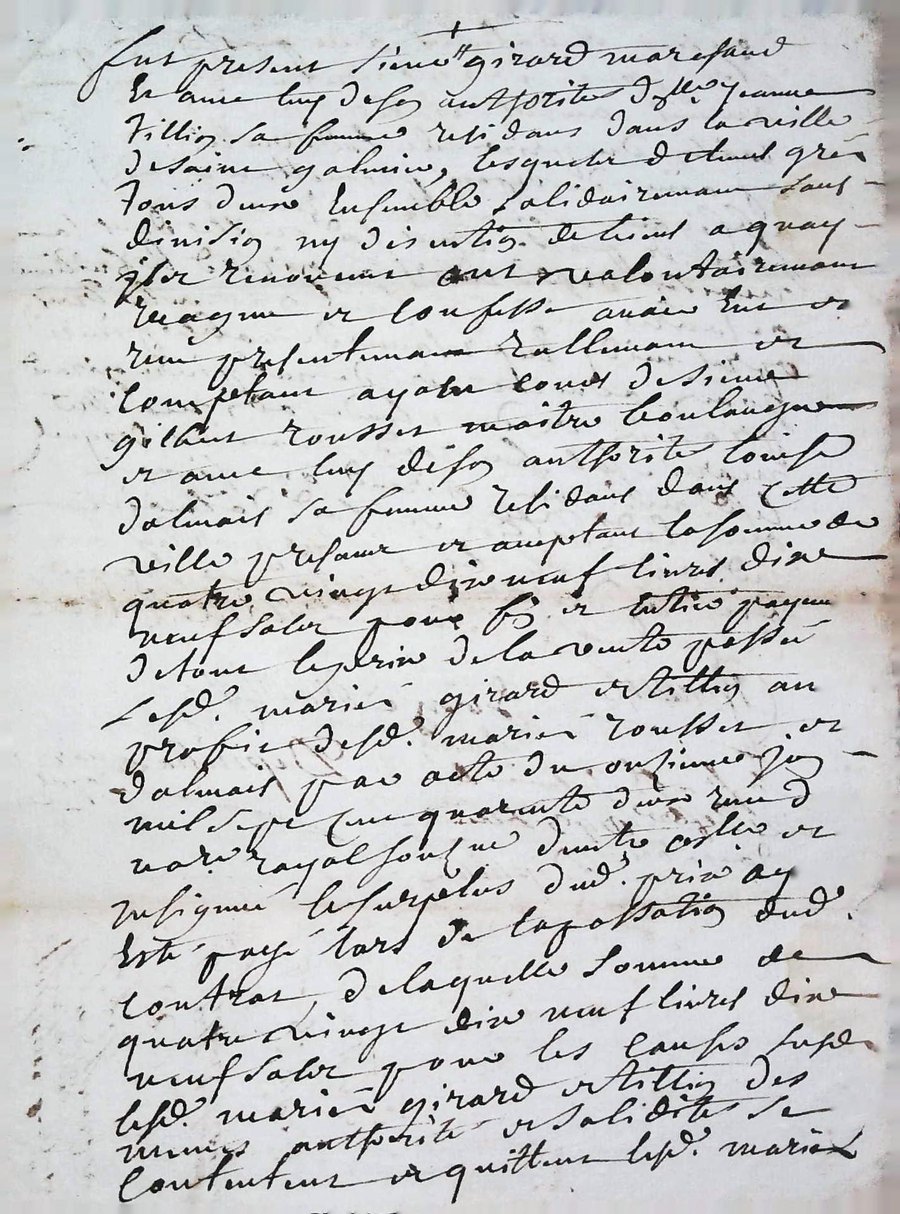 fut present sieur girard marchand
Et avec luy de son authorité d.lle jeanne
Tillion sa femme residans dans la ville
de saint galmier, lesquels de leurs gréz
tous deux Ensemble solidairement sans
division ny discution de biens a quoy
ils renoncent ont volontairement
et confessé avoir Eut et
reçu presentement rellement et
comptant ayant cours de sieur
gilbert rousset maitre boulanger
et avec luy de son authorité louise
dalmais sa femme residans dans cette
ville presans et acceptans la somme de
quatre vingt dix neuf livres dix
neuf sols pour fin et Entier payem
de tout le prix de la vente passée
Lesd. mariés girard et tillion au
profit desd. mariés rousset et
dalmais par acte du onsieme
mil sept cent quarente deux receu
no.re royal soubsigné
le surplus dud. prix ay
Esté payé lors de la passation dud.
contrat, de laquelle somme de
quatre vingt dix neuf livres dix
neuf sols pour les causes susd
lesd. mariés girard et tillion des
mêmes authorité et solidité se
contentent et quittent lesd. mariés